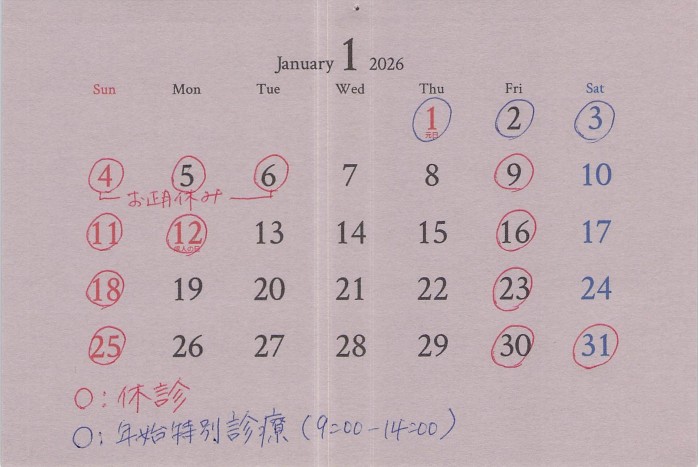 January 1 2026
Sun Mon Tue Wed Thu Fri Sat
1 2 3
元日
4 5 6 7 8 9 10
お正月休み
11 12 13 14 15 16 17
成人の日
18 19 20 21 22 23 24
25 26 27 28 29 30 31
○:休診
○:年始特別診療(9:00-14:00)